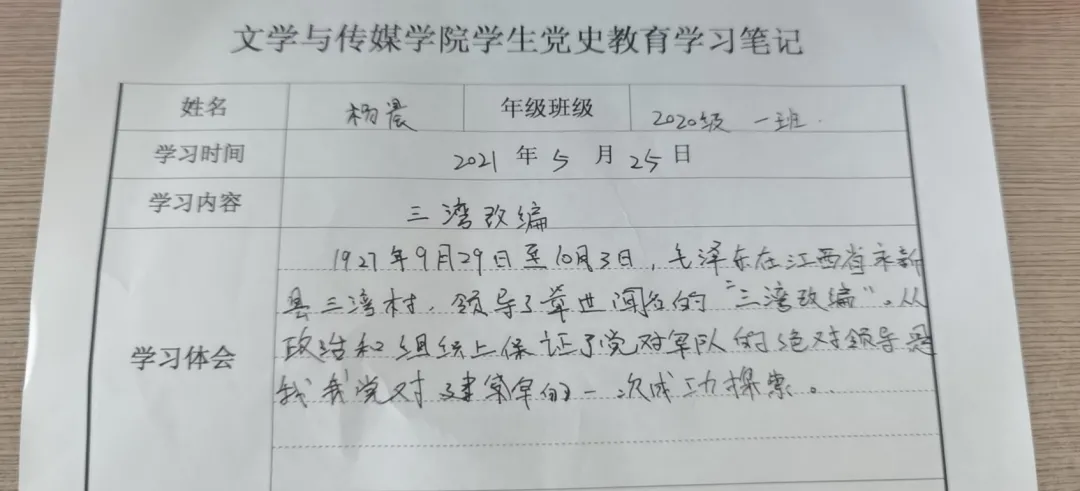 文学与传媒学院学生党史教育学习笔记
姓名 杨晨 年级班级 2020级 一班
学习时间 2021 年 5 月 25 日
学习内容 三湾改编
1927年9月29日至10月3日，毛泽东在江西省永新
县三湾村，领导了举世闻名的“三湾改编”。从
政治和组织上保证了党对军队的绝对领导是
学习体会
我我党对建军的一次成功探索。